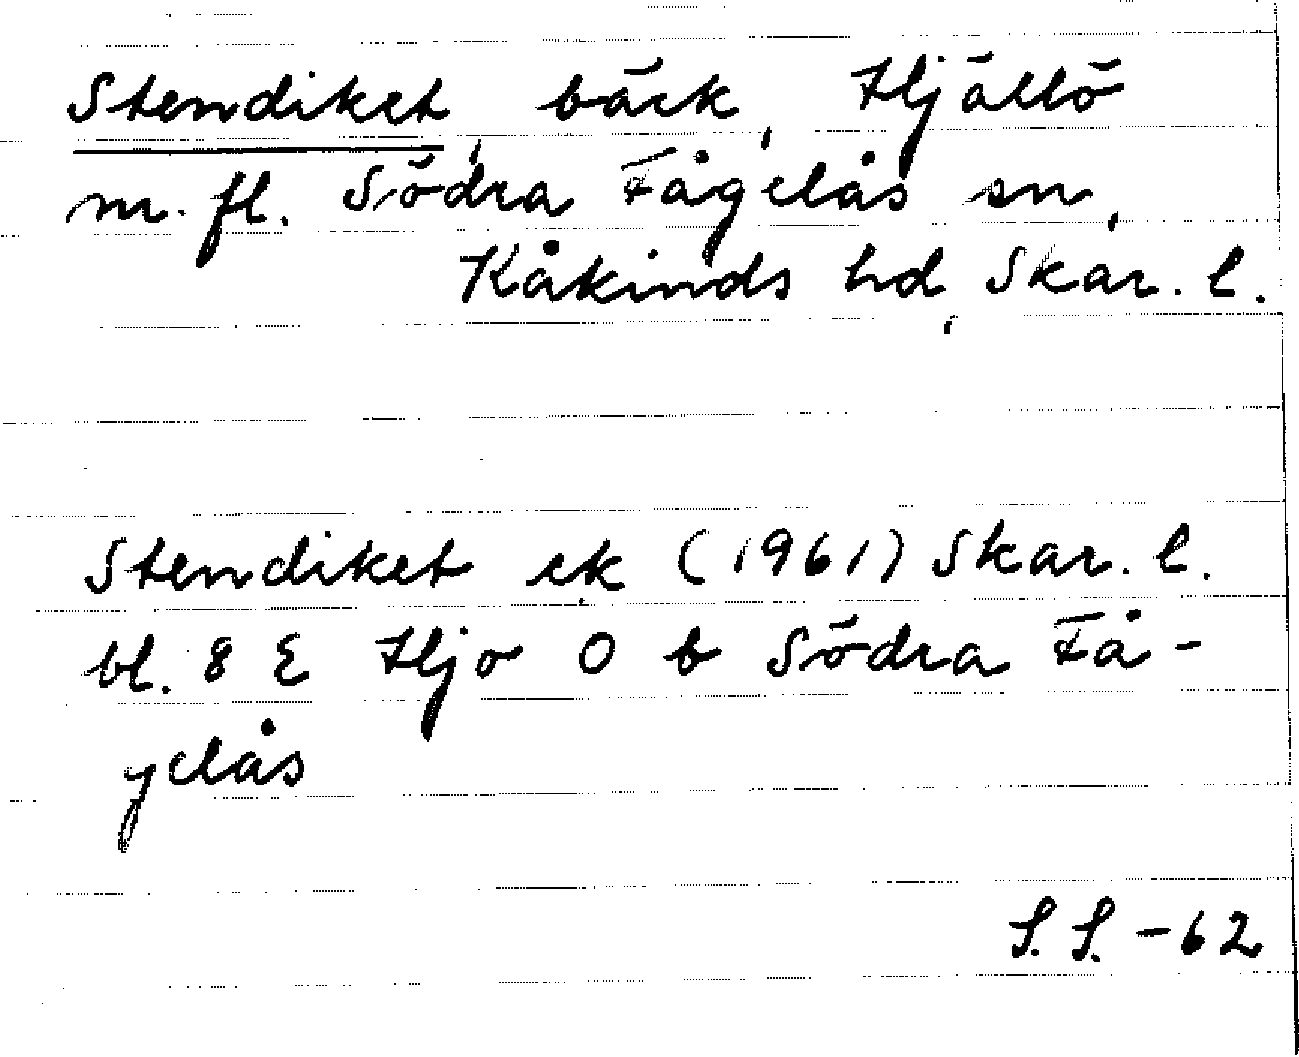 Stendiket, bäck, Hjällö
m. fl. Södra Fågelås sn,
Kåkinds hd, Skar. l.
Stendiket ek (1961) Skar. l.
bl. 8 E Hjo O b Södra Få-
gelås
S. S. -62